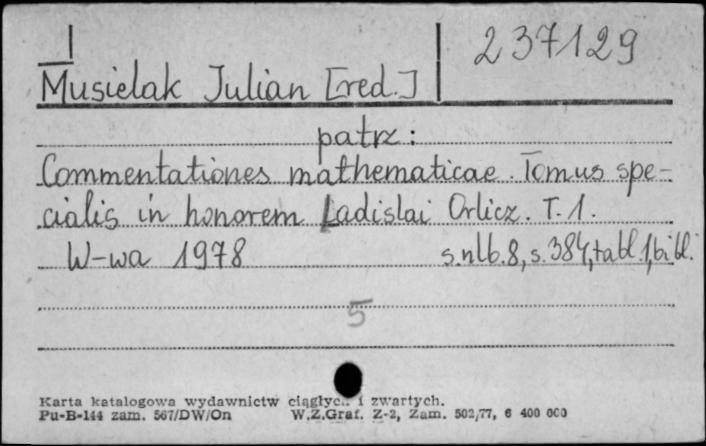 237129
Musielak Julian [red.]
patrz:
Commentationes mathematicae. Tomus spe-
cialis in honorem Ladislai Orlicz. T. 1.
W-wa 1978 s.nlb.8, s.384, tabl.1, bibl.
5
Karta katalogowa wydawnictw i zwartych.
Pu-B-144 zam. 567/DW/On W.Z.Graf. Z-2, Zam. 502/77, 6 400 000